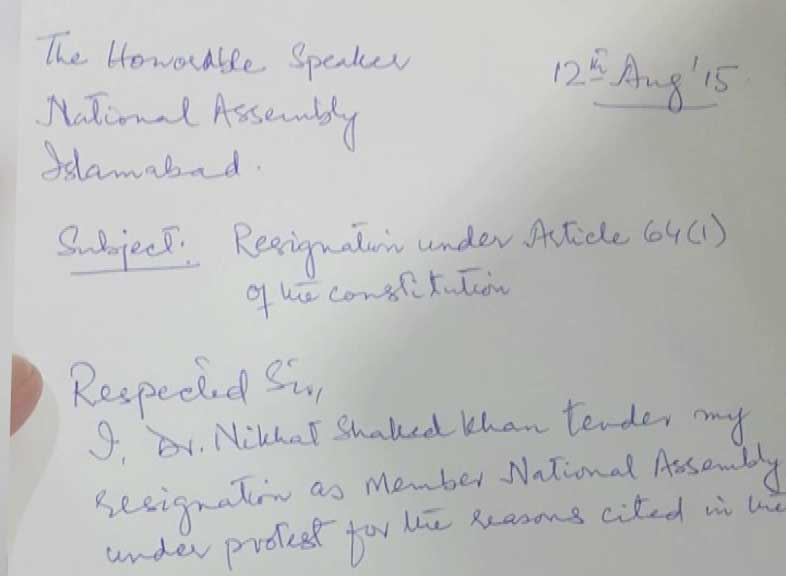 The Honorable Speaker
12th Aug '15.
National Assembly
Islamabad.
Subject: Resignation under Article 64(1)
of the constitution
Respected Sir,
I, Dr. Nikhat Shakeel Khan tender my
resignation as Member National Assembly
under protest for the reasons cited in the